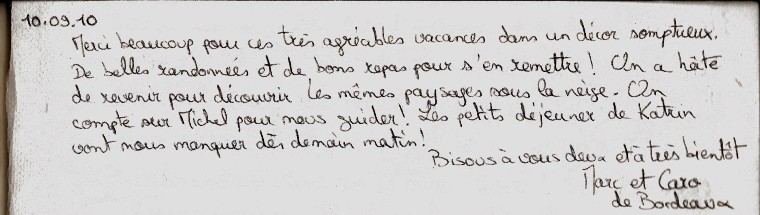 10.09.10
Merci beaucoup pour ces très agréables vacances dans un décor somptueux.
De belles randonnées et de bons repas pour s'en remettre ! On a hâte
de revenir pour découvrir les mêmes paysages sous la neige. On
compte sur Michel pour nous guider ! Les petits déjeuner de Katrin
vont nous manquer dès demain matin !
Bisous à vous deux et à très bientôt
Marc et Caro
de Bordeaux